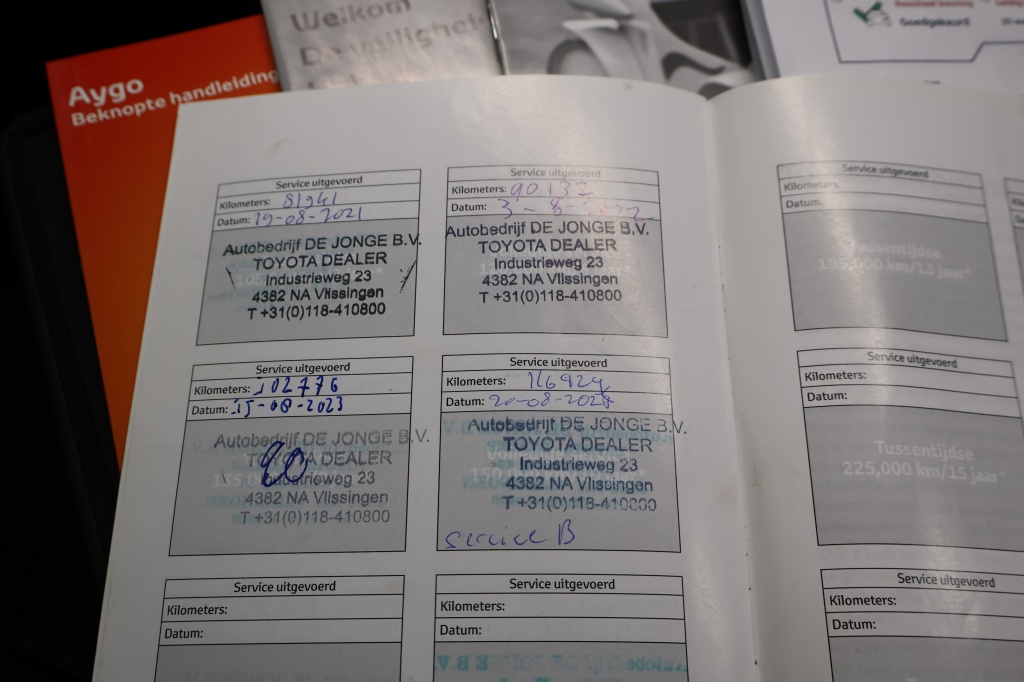 Aygo
Beknopte handleiding
Welkom
Goedgekeurd
Service uitgevoerd
Kilometers: 81941
Datum: 19-08-2021
Autobedrijf DE JONGE B.V.
TOYOTA DEALER
Industrieweg 23
4382 NA Vlissingen
T +31(0)118-410800
Service uitgevoerd
Kilometers: 90132
Datum: 3-8-2022
Autobedrijf DE JONGE B.V.
TOYOTA DEALER
Industrieweg 23
4382 NA Vlissingen
T +31(0)118-410800
Service uitgevoerd
Kilometers: 102776
Datum: 15-08-2023
Autobedrijf DE JONGE B.V.
TOYOTA DEALER
Industrieweg 23
4382 NA Vlissingen
T +31(0)118-410800
Service uitgevoerd
Kilometers: 116929
Datum: 20-08-2024
Autobedrijf DE JONGE B.V.
TOYOTA DEALER
Industrieweg 23
4382 NA Vlissingen
T +31(0)118-410800
service B
Service uitgevoerd
Kilometers:
Datum:
Service uitgevoerd
Kilometers:
Datum:
Service uitgevoerd
Kilometers:
Datum:
Tussentijdse
195,000 km/13 jaar*
Service uitgevoerd
Kilometers:
Datum:
Tussentijdse
225,000 km/15 jaar*
Service uitgevoerd
Kilometers:
Datum: